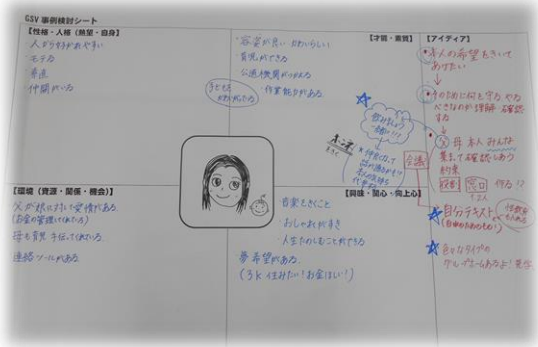 GSV 事例検討シート
【性格・人格(熱望・自身)】
人から好かれやすい
モテる
素直
仲間がいる
【才能・素質】
・容姿が良い かわいらしい
育児ができる
公共機関がつかえる
・作業能力がある
子どもを
【アイディア】
本人の希望をきいて
あげたい
そのために何を守る やる
べきなのか理解 確認
する
父 母 本人 みんな
集まって確認しあう
約束
役割 窓口 作る!?
会議
自分テキスト
(自由のためのもの!)
色々なタイプの
グループホームあるよ!見学
【環境(資源・関係・機会)】
父が娘に対して愛情がある
(お金の管理してくれている)
母も育児 手伝ってくれている
連絡ツールがある
【興味・関心・向上心】
音楽をきくこと
おしゃれがすき
人生たのしむことができる
夢 希望がある
(3K 住みたい!お金ほしい!)